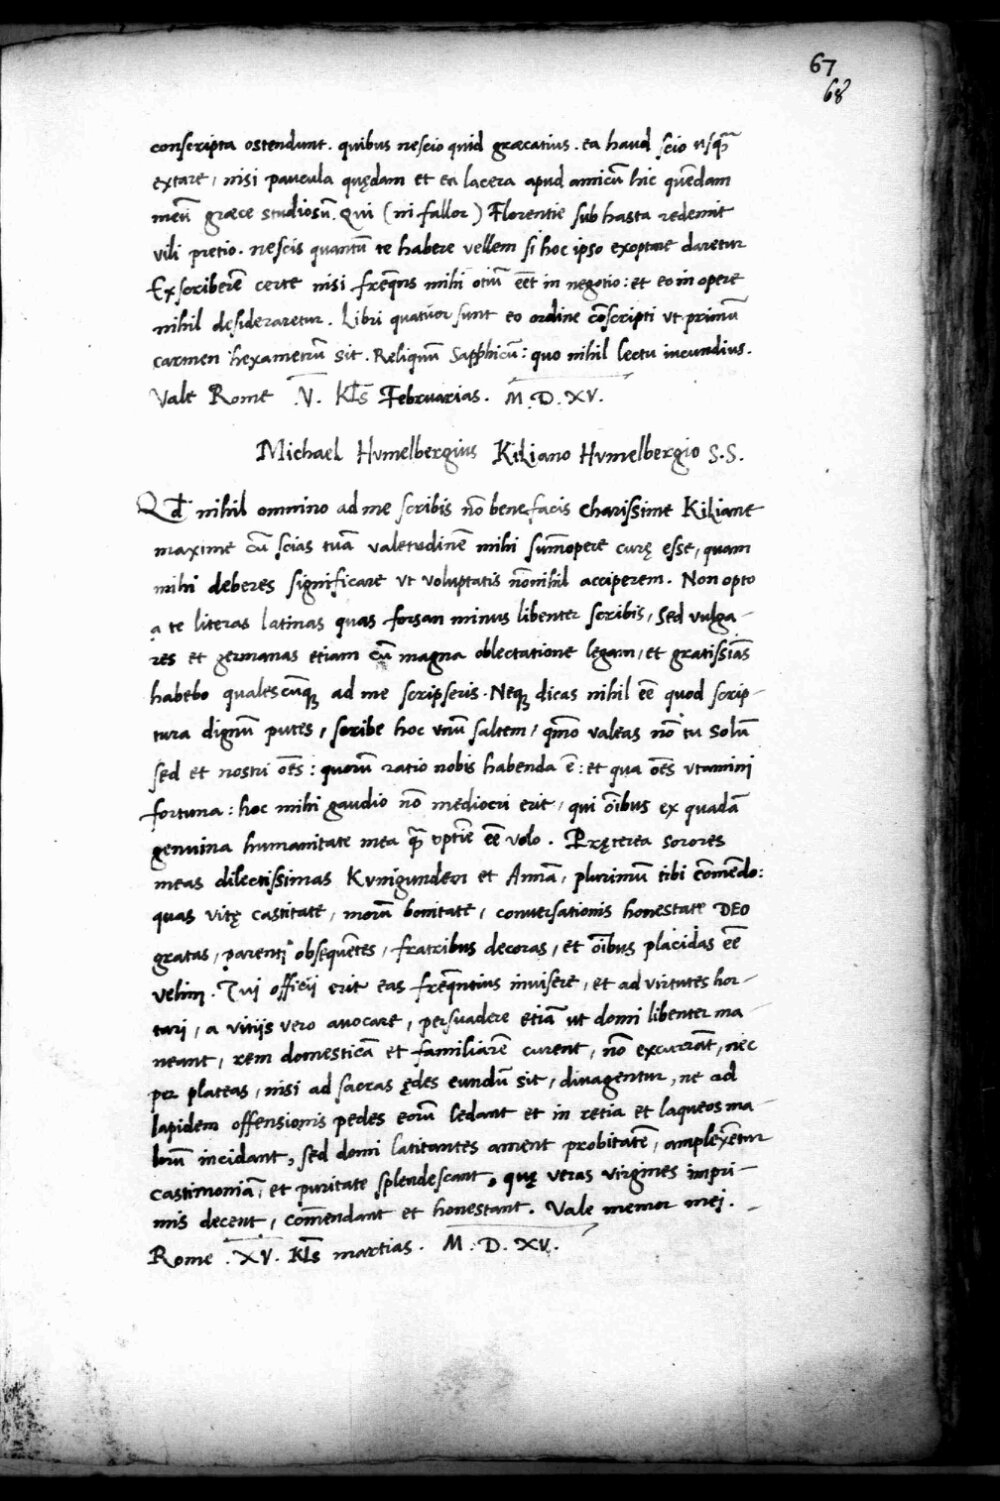 67
68
conscripta ostendunt. quibus nescio quid græcatius. ea haud scio usq̃
extare, nisi paucula quędam et ea lacera apud amicũ hic quẽdam
meũ græce studiosũ. Qui (ni fallor) Florentie sub hasta redemit
vili pretio. nescis quantũ te habere vellem si hoc ipso exoptare daretur
Exscriberẽ certe nisi freq̃ns mihi otiũ eẽt in negotio: et eo in opere
nihil desideraretur. Libri quatuor sunt eo ordine cõscripti vt primũ
carmen hexametrũ sit. Reliquũ Sapphicũ: quo nihil lectu iucundius.
Vale Rome .V. Kl̃s Februarias. M.D.XV.
Michael Hvmelbergius Kiliano Hvmelbergio S.S.
Qd̃ nihil omnino ad me scribis nõ benefacis charissime Kiliane
maxime cũ scias tuã valetudinẽ mihi sum̃opere curę esse, quam
mihi deberes significare vt voluptatis nõnihil acciperem. Non opto
a te literas latinas quas forsan minus libenter scribis, sed vulga-
res et germanas etiam cũ magna oblectatione legam, et gratissiãs
habebo qualescũq; ad me scripseris. Neq; dicas nihil eẽ quod scrip-
tura dignũ putes, scribe hoc vnũ saltem, qm̃o valeas nõ tu solũ
sed et nostri oẽs: quorũ ratio nobis habenda ẽ: et qua oẽs vtamini
fortuna: hoc mihi gaudio nõ mediocri erit, qui oĩbus ex quadã
genuina humanitate mea q̃ optĩe eẽ volo. Pręterea sorores
meas dilectissimas Kvnigunden et Annã, plurimũ tibi com̃ẽdo:
quas vitę castitate, morũ bonitate, conversationis honestate DEO
gratas, parenti obsequẽtes, fratribus decoras, et oĩbus placidas eẽ
velim. Tui officij erit eas freq̃ntius invisere, et ad virtutes hor-
tari, a vitijs vero auocare, persuadere etiã ut domi libenter ma-
neant, rem domesticã et familiarẽ curent, nõ excurrãt, nec
per plateas, nisi ad sacras ędes eundũ sit, divagentur, ne ad
lapidem offensionis pedes eorũ ledant et in retia et laqueos ma-
lorũ incidant, sed domi latitantes ament probitatẽ, amplexẽtur
castimoniã, et puritate splendescant, quę veras virgines impri-
mis decent, com̃endant et honestant. Vale memor mei.
Rome .XV. Kl̃s martias. M.D.XV.